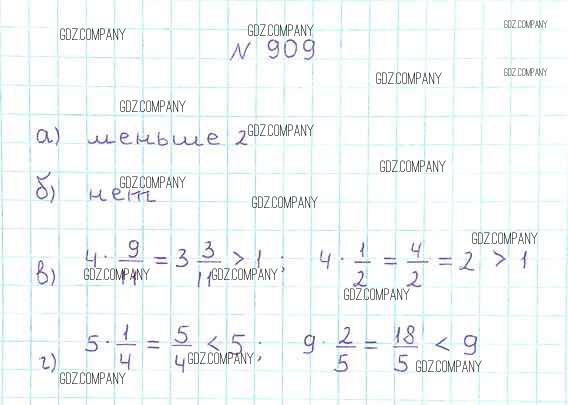 GDZ.COMPANY GDZ.COMPANY GDZ.COMPANY
№ 909
GDZ.COMPANY GDZ.COMPANY
GDZ.COMPANY
а) меньше 2 GDZ.COMPANY
GDZ.COMPANY
б) нет GDZ.COMPANY
GDZ.COMPANY
GDZ.COMPANY
в) 4 · 9/11 = 3 3/11 > 1; 4 · 1/2 = 4/2 = 2 > 1
GDZ.COMPANY GDZ.COMPANY
GDZ.COMPANY
г) 5 · 1/4 = 5/4 < 5; 9 · 2/5 = 18/5 < 9
GDZ.COMPANY GDZ.COMPANY
GDZ.COMPANY